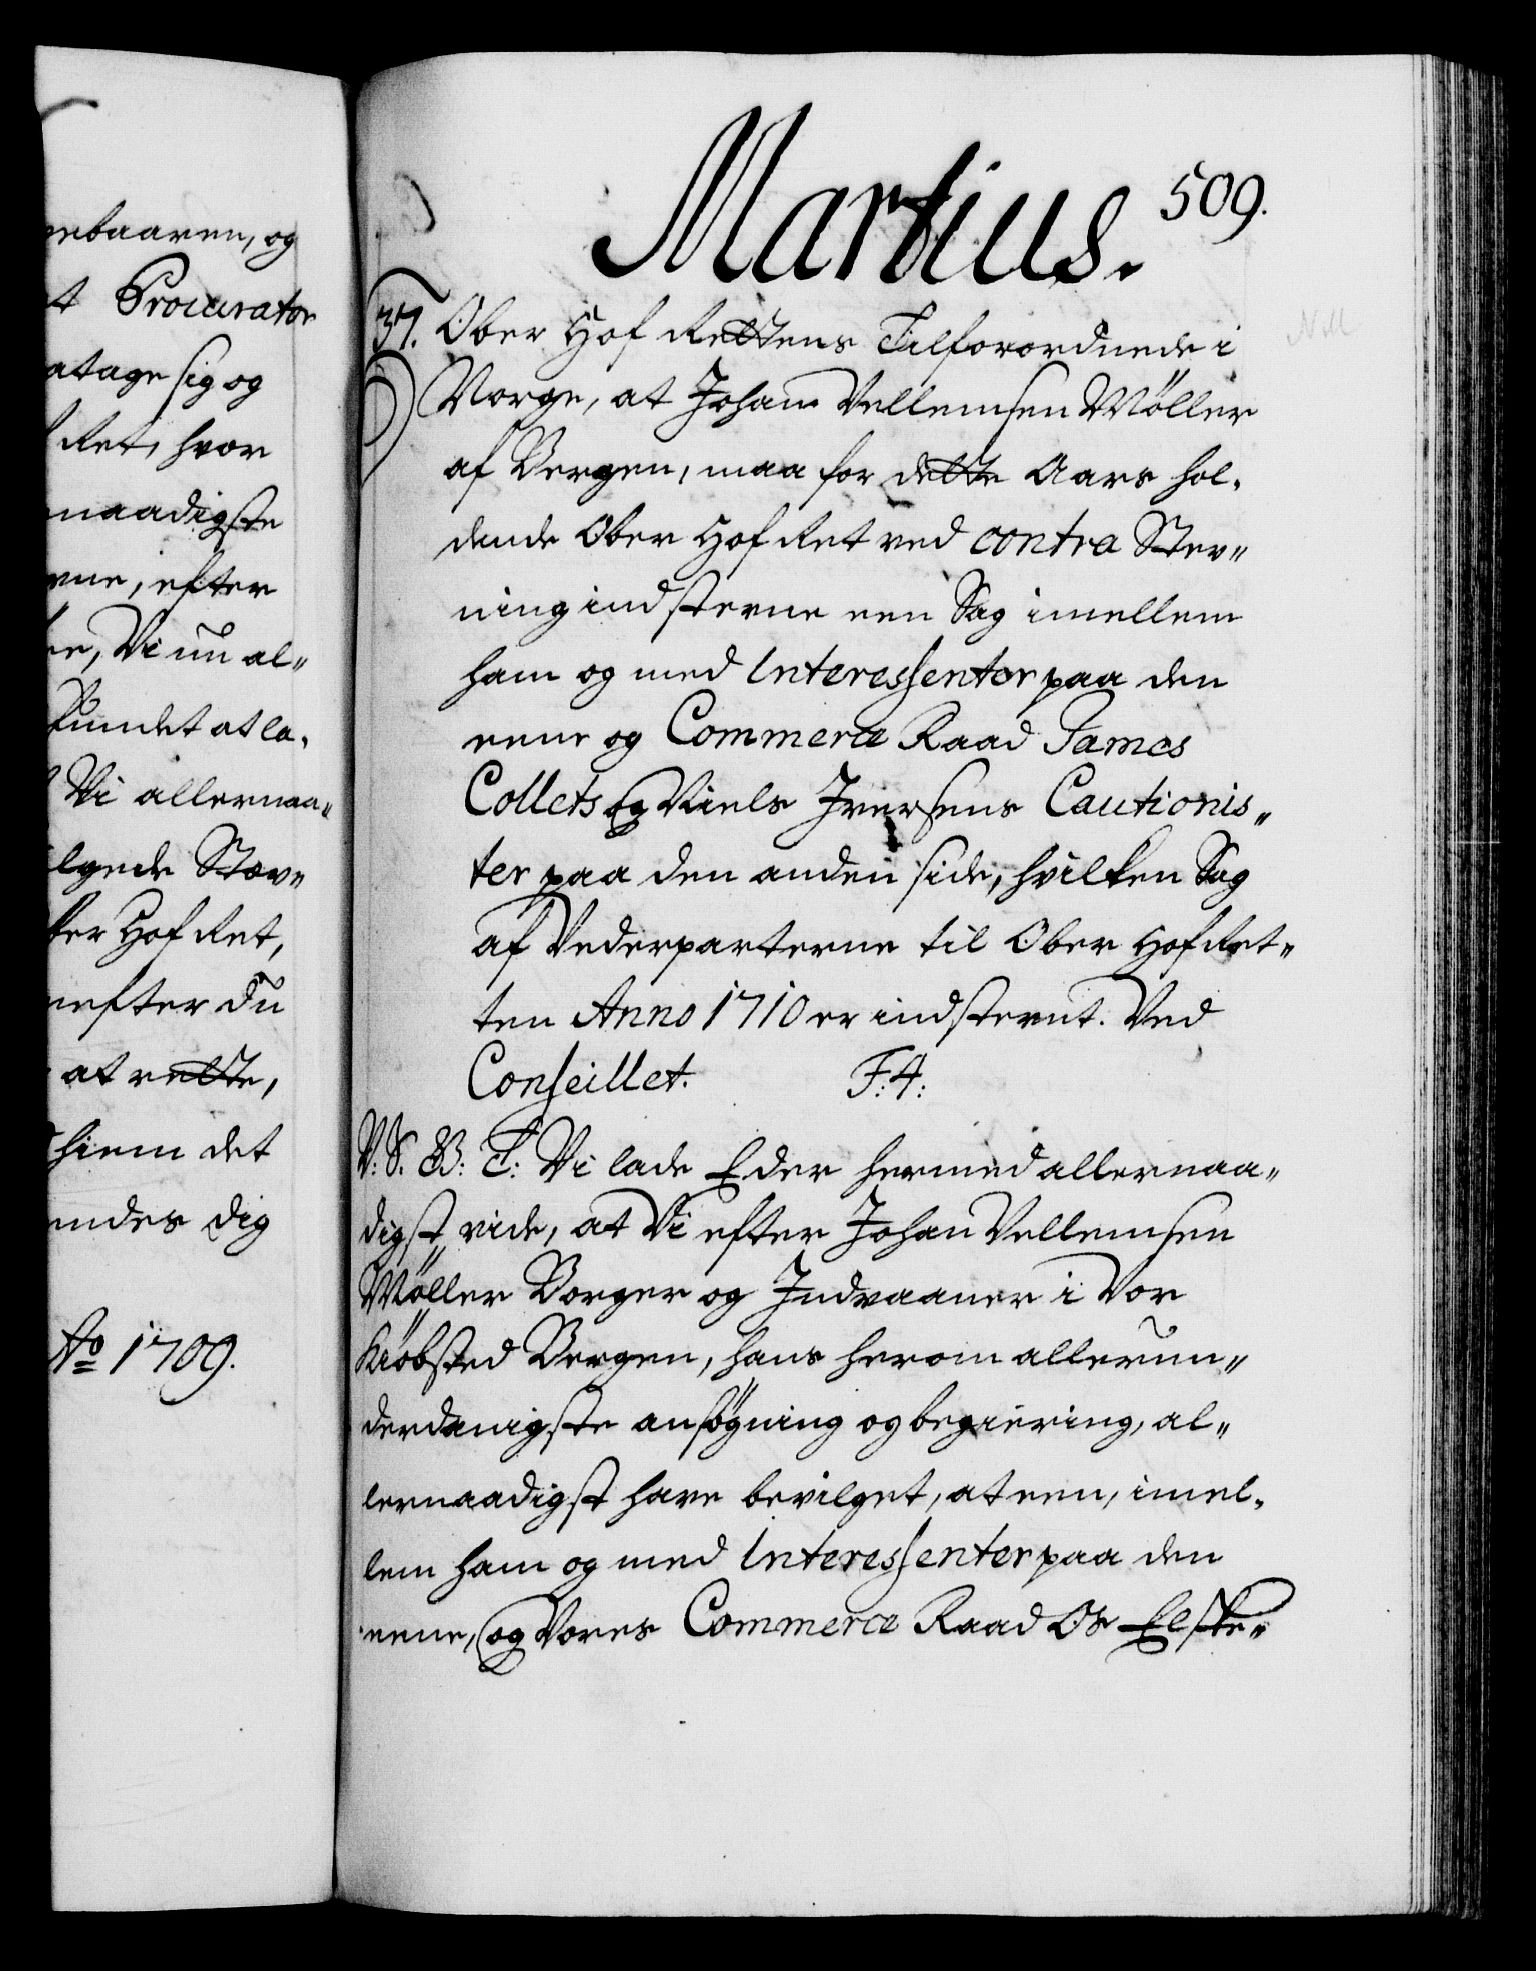 nebaaren, og
t Procurator
atage sig og
Ret, hvor
naadigste
rne, efter
re, Vi nu al"
kundet at la,
Vi allernaa"
lgede Stæv"
ber Hof Ret,
refter du
at rette,
hiem det
endes dig
Ao 1709.
Martius.
509.
37. Ober Hof Rettens Tilforordnede i
Norge, at Johan Vellemsen Møller
af Bergen, maa for dette Aars hol,
dende Ober Hof Ret ved contra Stev"
ning indsterne een Sag imellem
ham og med Interessenter paa den
eene og Commerce Raad James
Collets og Niels Iversens Cautionis,,
ter paa den anden side, hvilken Sag
af Vederparterne til Ober Hof Ret"
ten Anno 1710 er indstevnt. Ved
Conseillet. F:4:
V: S. B: T: Vi lade Eder hermed allernaa"
digst vide, at Vi efter Johan Vellemsen
Møller Borger og Indvaaner i Vor
Kiøbsted Bergen, hans herom allerun"
derdanigste ansøgning og begiering, al"
lernaadigst have bevilget, at een, imel,
lem ham og med Interessenter paa den
eene, og Vores Commerce Raad Os Elske"